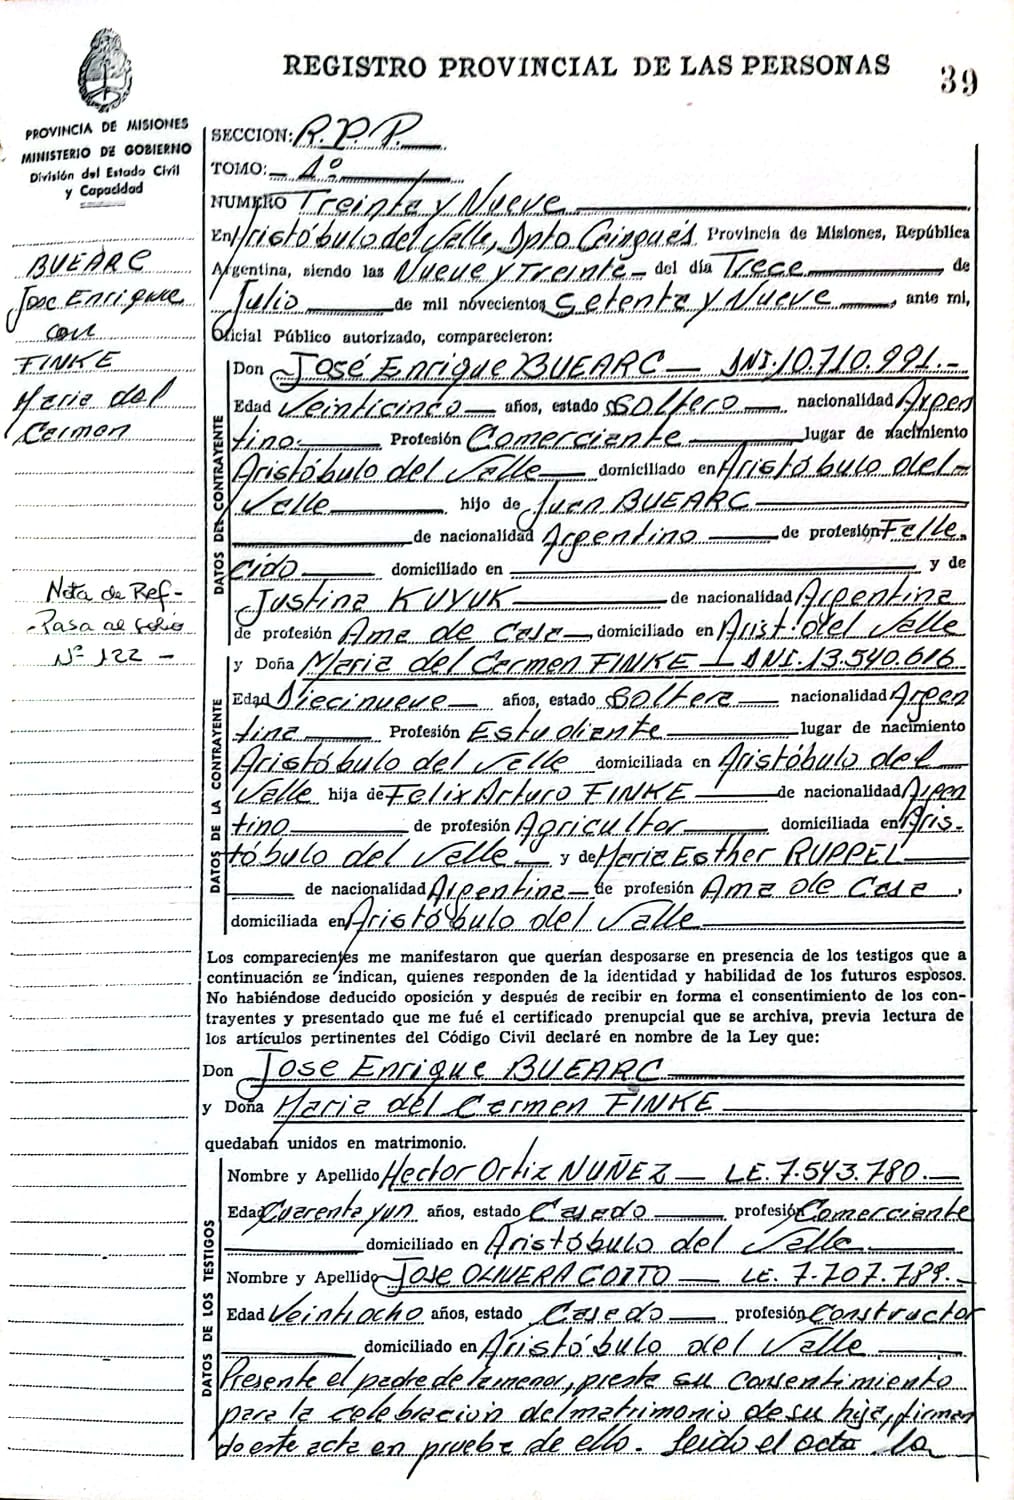 REGISTRO PROVINCIAL DE LAS PERSONAS
39
PROVINCIA DE MISIONES
MINISTERIO DE GOBIERNO
División del Estado Civil
y Capacidad
BUEARC
Jose Enrique
con
FINKE
Maria del
Carmen
Nota de Ref-
-Pasa al folio
Nº 122 -
SECCION: R.P.P.
TOMO: 1º
NUMERO Treinta y Nueve
En Aristóbulo del Valle, Dpto Cainguás Provincia de Misiones, República
Argentina, siendo las Nueve y Treinta - del día Trece de
Julio de mil novecientos Setenta y Nueve, ante mi,
Oficial Público autorizado, comparecieron:
DATOS DEL CONTRAYENTE
Don José Enrique BUEARC - DNI.10.710.991.-
Edad Veinticinco años, estado Soltero nacionalidad Argen
tino. Profesión Comerciante lugar de nacimiento
Aristóbulo del Valle domiciliado en Aristóbulo del
Valle hijo de Juan BUEARC
de nacionalidad Argentino de profesión Falle.
cido domiciliado en y de
Justina KUYUK de nacionalidad Argentina
de profesión Ama de Casa domiciliado en Arist. del Valle
DATOS DE LA CONTRAYENTE
y Doña Maria del Carmen FINKE - DNI.13.540.616
Edad Diecinueve años, estado Soltera nacionalidad Argen
tina Profesión Estudiante lugar de nacimiento
Aristóbulo del Valle domiciliada en Aristóbulo del
Valle hija de Felix Arturo FINKE de nacionalidad Argen
tino de profesión Agricultor domiciliada en Aris-
tóbulo del Valle y de Maria Esther RUPPEL
de nacionalidad Argentina de profesión Ama de Casa.
domiciliada en Aristóbulo del Valle
Los comparecientes me manifestaron que querían desposarse en presencia de los testigos que a
continuación se indican, quienes responden de la identidad y habilidad de los futuros esposos.
No habiéndose deducido oposición y después de recibir en forma el consentimiento de los con-
trayentes y presentado que me fué el certificado prenupcial que se archiva, previa lectura de
los artículos pertinentes del Código Civil declaré en nombre de la Ley que:
Don Jose Enrique BUEARC
y Doña Maria del Carmen FINKE
quedaban unidos en matrimonio.
DATOS DE LOS TESTIGOS
Nombre y Apellido Hector Ortiz NUÑEZ - LE.7.543.780.-
Edad Cuarenta y un años, estado Casado profesión Comerciante
domiciliado en Aristóbulo del Valle
Nombre y Apellido Jose OLIVERA COITO - LE. 7.707.789.-
Edad Veintiocho años, estado Casado profesión Constructor
domiciliado en Aristóbulo del Valle
Presente el padre de la menor, presta su consentimiento
para la celebracion del matrimonio de su hija, firman
do este acta en prueba de ello. Leido el acta la